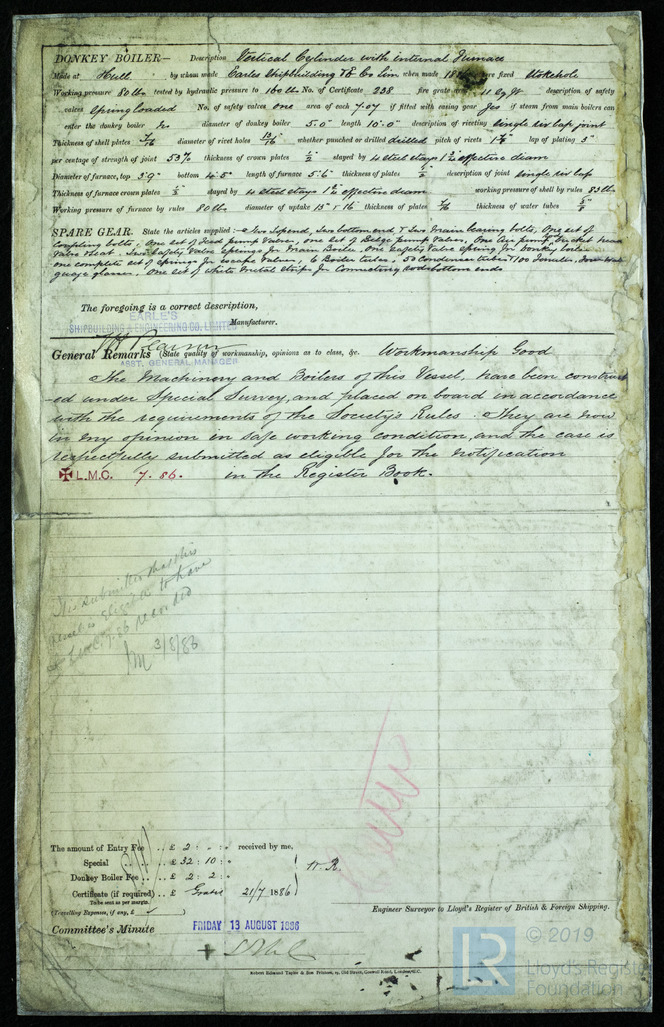 DONKEY BOILER— Description Vertical Cylinder with internal Furnace
Made at Hull by whom made Earles Shipbuilding & E Co Lim when made 188 where fixed Stokehole
Working pressure 80 lbs tested by hydraulic pressure to 160 lbs No. of Certificate 238 fire grate area 11 Sq ft description of safety
valves Spring loaded No. of safety valves one area of each 7.07 if fitted with easing gear Yes if steam from main boilers can
enter the donkey boiler No diameter of donkey boiler 5.0" length 10.0" description of riveting Single riv lap joint
Thickness of shell plates 7/16 diameter of rivet holes 13/16 whether punched or drilled drilled pitch of rivets lap of plating 3"
per centage of strength of joint 53% thickness of crown plates 1/2 stayed by 4 steel stays 1 1/2 effective diam
Diameter of furnace, top 3.9" bottom 4.5" length of furnace 5.6" thickness of plates 1/2 description of joint Single riv lap
Thickness of furnace crown plates 1/2 stayed by 4 steel stays 1 1/2 effective diam working pressure of shell by rules 83 lbs
Working pressure of furnace by rules 80 lbs diameter of uptake 15" & 16 thickness of plates 7/16 thickness of water tubes
SPARE GEAR. State the articles supplied:— Two top end, Two bottom end, & Two Main bearing bolts, One set of
Coupling bolts, One set of Feed pump Valves, one set of Bilge pump Valves, One Air pump bucket head
Valve & seat. Two Safety Valve springs for Main Boiler. One Safety Valve spring for Donkey boiler
one complete set of springs for escape Valves, 6 Boiler tubes, 50 Condenser tubes & 100 Ferrules,
guage glasses. One set of White Metal Strips for Connecting rod bottom ends
The foregoing is a correct description,
EARLE'S
SHIPBUILDING & ENGINEERING CO. LIMITED
Manufacturer.
ASST. GENERAL MANAGER
General Remarks (State quality of workmanship, opinions as to class, &c. Workmanship Good
The Machinery and Boilers of this Vessel, have been construct
-ed under Special Survey, and placed on board in accordance
with the requirements of the Society's Rules. They are now
in my opinion in safe working condition, and the case is
respectfully submitted as eligible for the notification
✠ L.M.C. 7.86. in the Register Book.
It is submitted that this
vessel is eligible to have
L.M.C. 7.86 recorded
3/8/86
The amount of Entry Fee .. £ 2 : " : " received by me,
Special .. £ 32 : 10 : " W. R.
Donkey Boiler Fee .. £ 2 : 2 : "
Certificate (if required) .. £ Gratis 21/7 1886
To be sent as per margin.
(Travelling Expenses, if any, £ )
Engineer Surveyor to Lloyd's Register of British & Foreign Shipping.
Committee's Minute FRIDAY 13 AUGUST 1886
Robert Edmund Taylor & Son Printers, 19, Old Street, Goswell Road, London, E.C.
LR © 2019
Lloyd's Register
Foundation